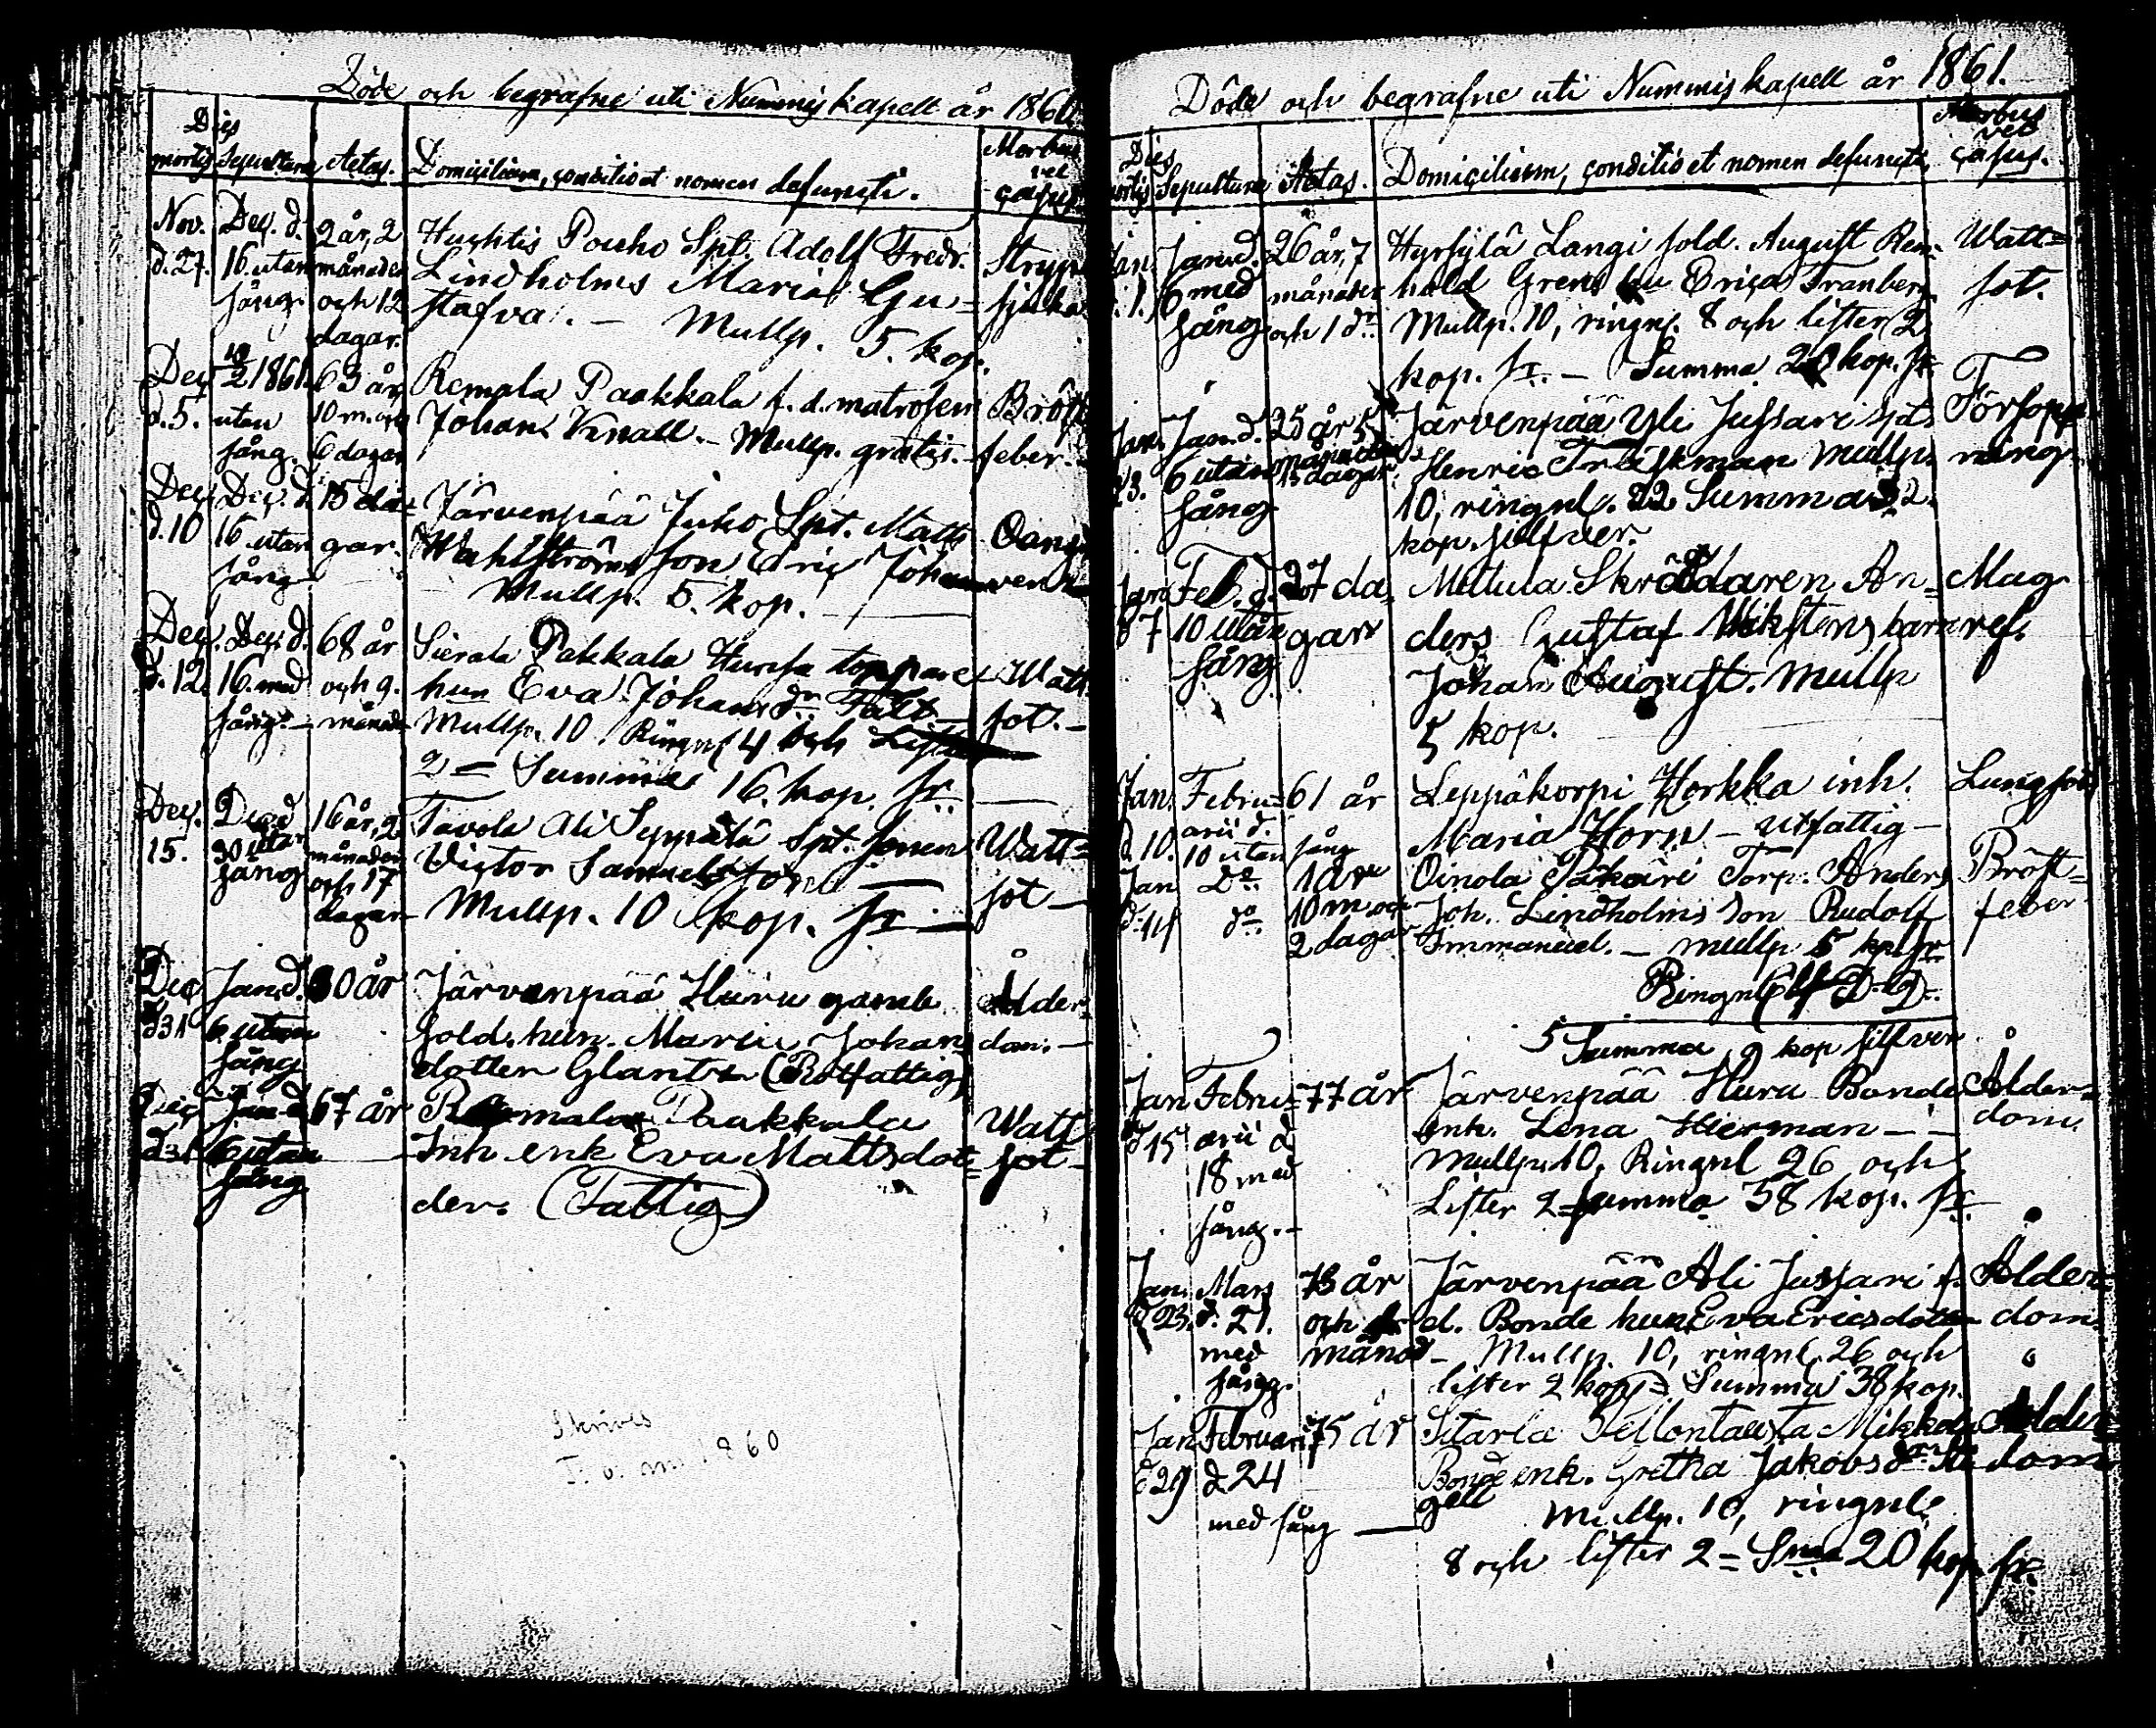 Döde och begrafne uti Nummis kapell år 1860
Dies
mortis Sepulturæ Aetas. Domicilium, conditio et nomen defuncti. Morbus vel casus
Nov. d. 27. Dec. d. 16. utan sång 2 år, 2 månader och 12 dagar. Huhtis Poucho Spt. Adolf Fredr.
Lindholms Maria Gu=
stafva. — Mullp. 5. kop.
Stryp sjuka
Dec d. 5. 2 1861. utan sång. 63 år, 10 m. och 6 dagar Remala Paakkala f. d. matrosen
Johan Knall. — Mullp. gratis. —
Bröst feber. —
Dec d. 10 Dec. d. 16. utan sång 15 da= gar. Järvenpää Juho Spt. Matts
Wahlströms son Eric Johan
Mullp. 5. kop. —
Dec. d. 12. Dec. d. 16. med sång. — 68 år och 9. månader Sierala Pakkala
hun Eva Johans dr Fält
Mullp. 10 Ringnl 4 och Lister
2 = Summa 16. kop. sr. —
Watt sot. —
Dec. 15. Dec d 30 utan sång 16 år, 2 månader och 17 dagar Tavola Ali Seppälä Spt. sonen
Victor Samuelsson —
Mullp. 10 kop. sr —
Watt= sot —
Dec d 31 Jan d. 6 utan sång 80 år Järvenpää Huru gamle
sold. hun. Maria Johans
dotter Glants (Rotfattig)
Ålder= dom. —
Dec d 31 Jan d 6 utan sång 67 år Remala Paakkala
Inh enk Eva Mattsdot=
der. (Fattig)
Watt sot —
1860
Döde och begrafne uti Nummis kapell år 1861.
Dies
mortis Sepulturæ Aetas. Domicilium, conditio et nomen defuncti, Morbus vel casus.
Jan. d. 1. Jan. d. 6 med sång 26 år, 7 månader och 1 dr Hyrsylä Langi sold. August Rein=
hold Grens hu Erica Tranberg
Mullp. 10, ringnl. 8 och lister 2
kop. sr. — Summa 20 kop. sr
Watt= sot.
Jan. d 3. Jan d. 6 utan sång 25 år 5 månader 15 dagar. Järvenpää Yli Jussari
Henric Träskman mullp.
10, ringnl. 22 Summa 32.
kop. silfver.
Jan d 7 Feb. d. 10 utan sång 27 da= gar Mellula Skräddaren An=
ders Gustaf Wikstens barn
Johan August. Mullp
5 kop.
Mag ref.
Jan. d. 10. Febru= arii d. 10 utan sång 61 år Leppäkorpi Horkka inh.
Maria Horn — utfattig —
Lungsot
Jan d. 14 Do do 1 år 10 m. och 2 dagar Oinola Pakari Torp. Anders
Joh. Lindholms Son Rudolf
Immanuel. — mullp 5 kp sr
Bröst= feber
Summa 9 kop silfver
Jan d 15 Febru= arii d 18 med sång. — 77 år Järvenpää Huru Bonde
enk. Lena Hierman — —
mullp. 10, Ringnl 26 och
Lister 2 = summa 38 kop. sr
Ålder= dom.
Jan. d 23. Mars d. 21. med sång. 73 år och månad Järvenpää Ali Jussari f.
d. Bonde hun Eva Ericsdotter
— Mullp. 10, ringnl. 26 och
lister 2 kop = Summa 38 kop.
Ålder dom.
Jan d 29 Februari d 24 med sång — 75 år Sitarla Tellontausta Mikkola
Bonde enk. Gretha Jakobs dr
gell mullp. 10, ringnl.
8 och lister 2 = Sma 20 kop sr.
Ålder= dom